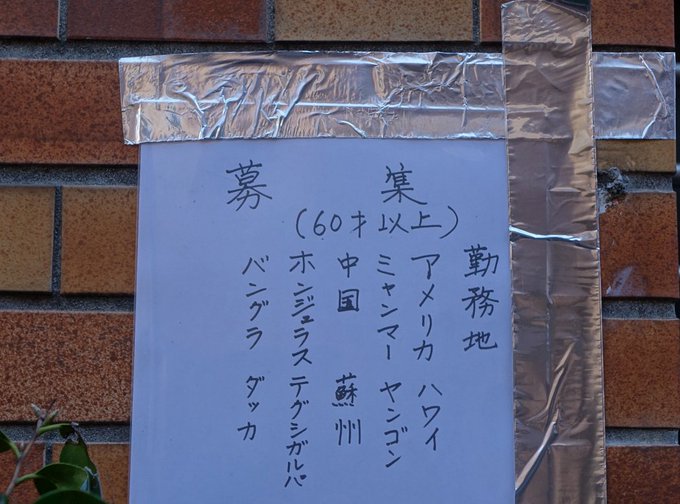 募集
(60才以上)
勤務地
アメリカ ハワイ
ミャンマー ヤンゴン
中国 蘇州
ホンジュラス テグシガルパ
バングラ ダッカ